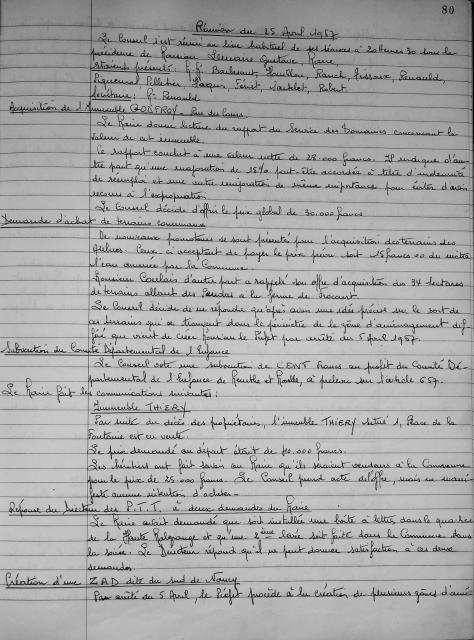 80
Réunion du 25 Avril 1967
Le Conseil s'est réuni au lieu habituel de ses séances à 20 heures 30 sous la
présidence de Monsieur Gustave, Maire,
étaient présents : M.M.
Pelletier,
Secrétaire : M.
Acquisition de l'Immeuble GODFROY - Rue du
Le Maire donne lecture du rapport du Service des Domaines concernant la
valeur de cet immeuble.
Ce rapport conclut à une valeur nette de 28.000 francs. Il indique d'au-
tre part qu'une majoration de 15% peut être accordée à titre d'indemnité
de réemploi et une autre majoration de même importance pour éviter d'avoir
recours à l'expropriation
Le Conseil décide d'offrir le prix global de 30.000 francs
Demande d'achat de terrains communaux
De nouveaux promoteurs se sont présentés pour l'acquisition des terains des
Ceux-ci acceptent de payer le prix prévu soit 15 francs 00 du mètre
l'eau amenée par la Commune.
Monsieur d'autre part a rappelé son offre d'acquisition des 34 hectares
de terrains allant des à la ferme de
Le Conseil décide de ne répondre qu'après avoir une idée précise sur le sort de
ces terrains qui se trouvent dans le périmètre de la zône d'aménagement dif-
féré que vient de créer Monsieur le Préfet par arrêté du 5 Avril 1967
Subvention du Comité Départemental de l'Enfance
Le Conseil vote une subvention de CENT francs au profit du Comité Dé-
partemental de l'Enfance de Meurthe et Moselle, à prélever sur l'article 657.
Le Maire fait les communications suivantes :
Immeuble THIERY
Par suite du décès des propriétaires, l'immeuble THIERY situé 1, Place de la
Fontaine est en vente.
Le prix demandé au départ était de 40.000 francs.
Les héritiers ont fait savoir au Maire qu'ils seraient vendeurs à la Commune
pour le prix de 25.000 francs. Le Conseil prend acte de l'offre, mais ne mani-
feste aucune intention d'acheter.
Réponse du Directeur des P.T.T. à deux demandes du Maire
Le Maire avait demandé que soit installée une boîte à lettres dans le quartier
de la Haute Malgrange et qu'une 2ème levée soit faite dans la Commune dans
la soirée. Le Directeur répond qu'il ne peut donner satisfaction à ces deux
demandes.
Création d'une ZAD dite du sud de Nancy
Par arrêté du 5 Avril, le Préfet procède à la création de plusieurs zônes d'amé-